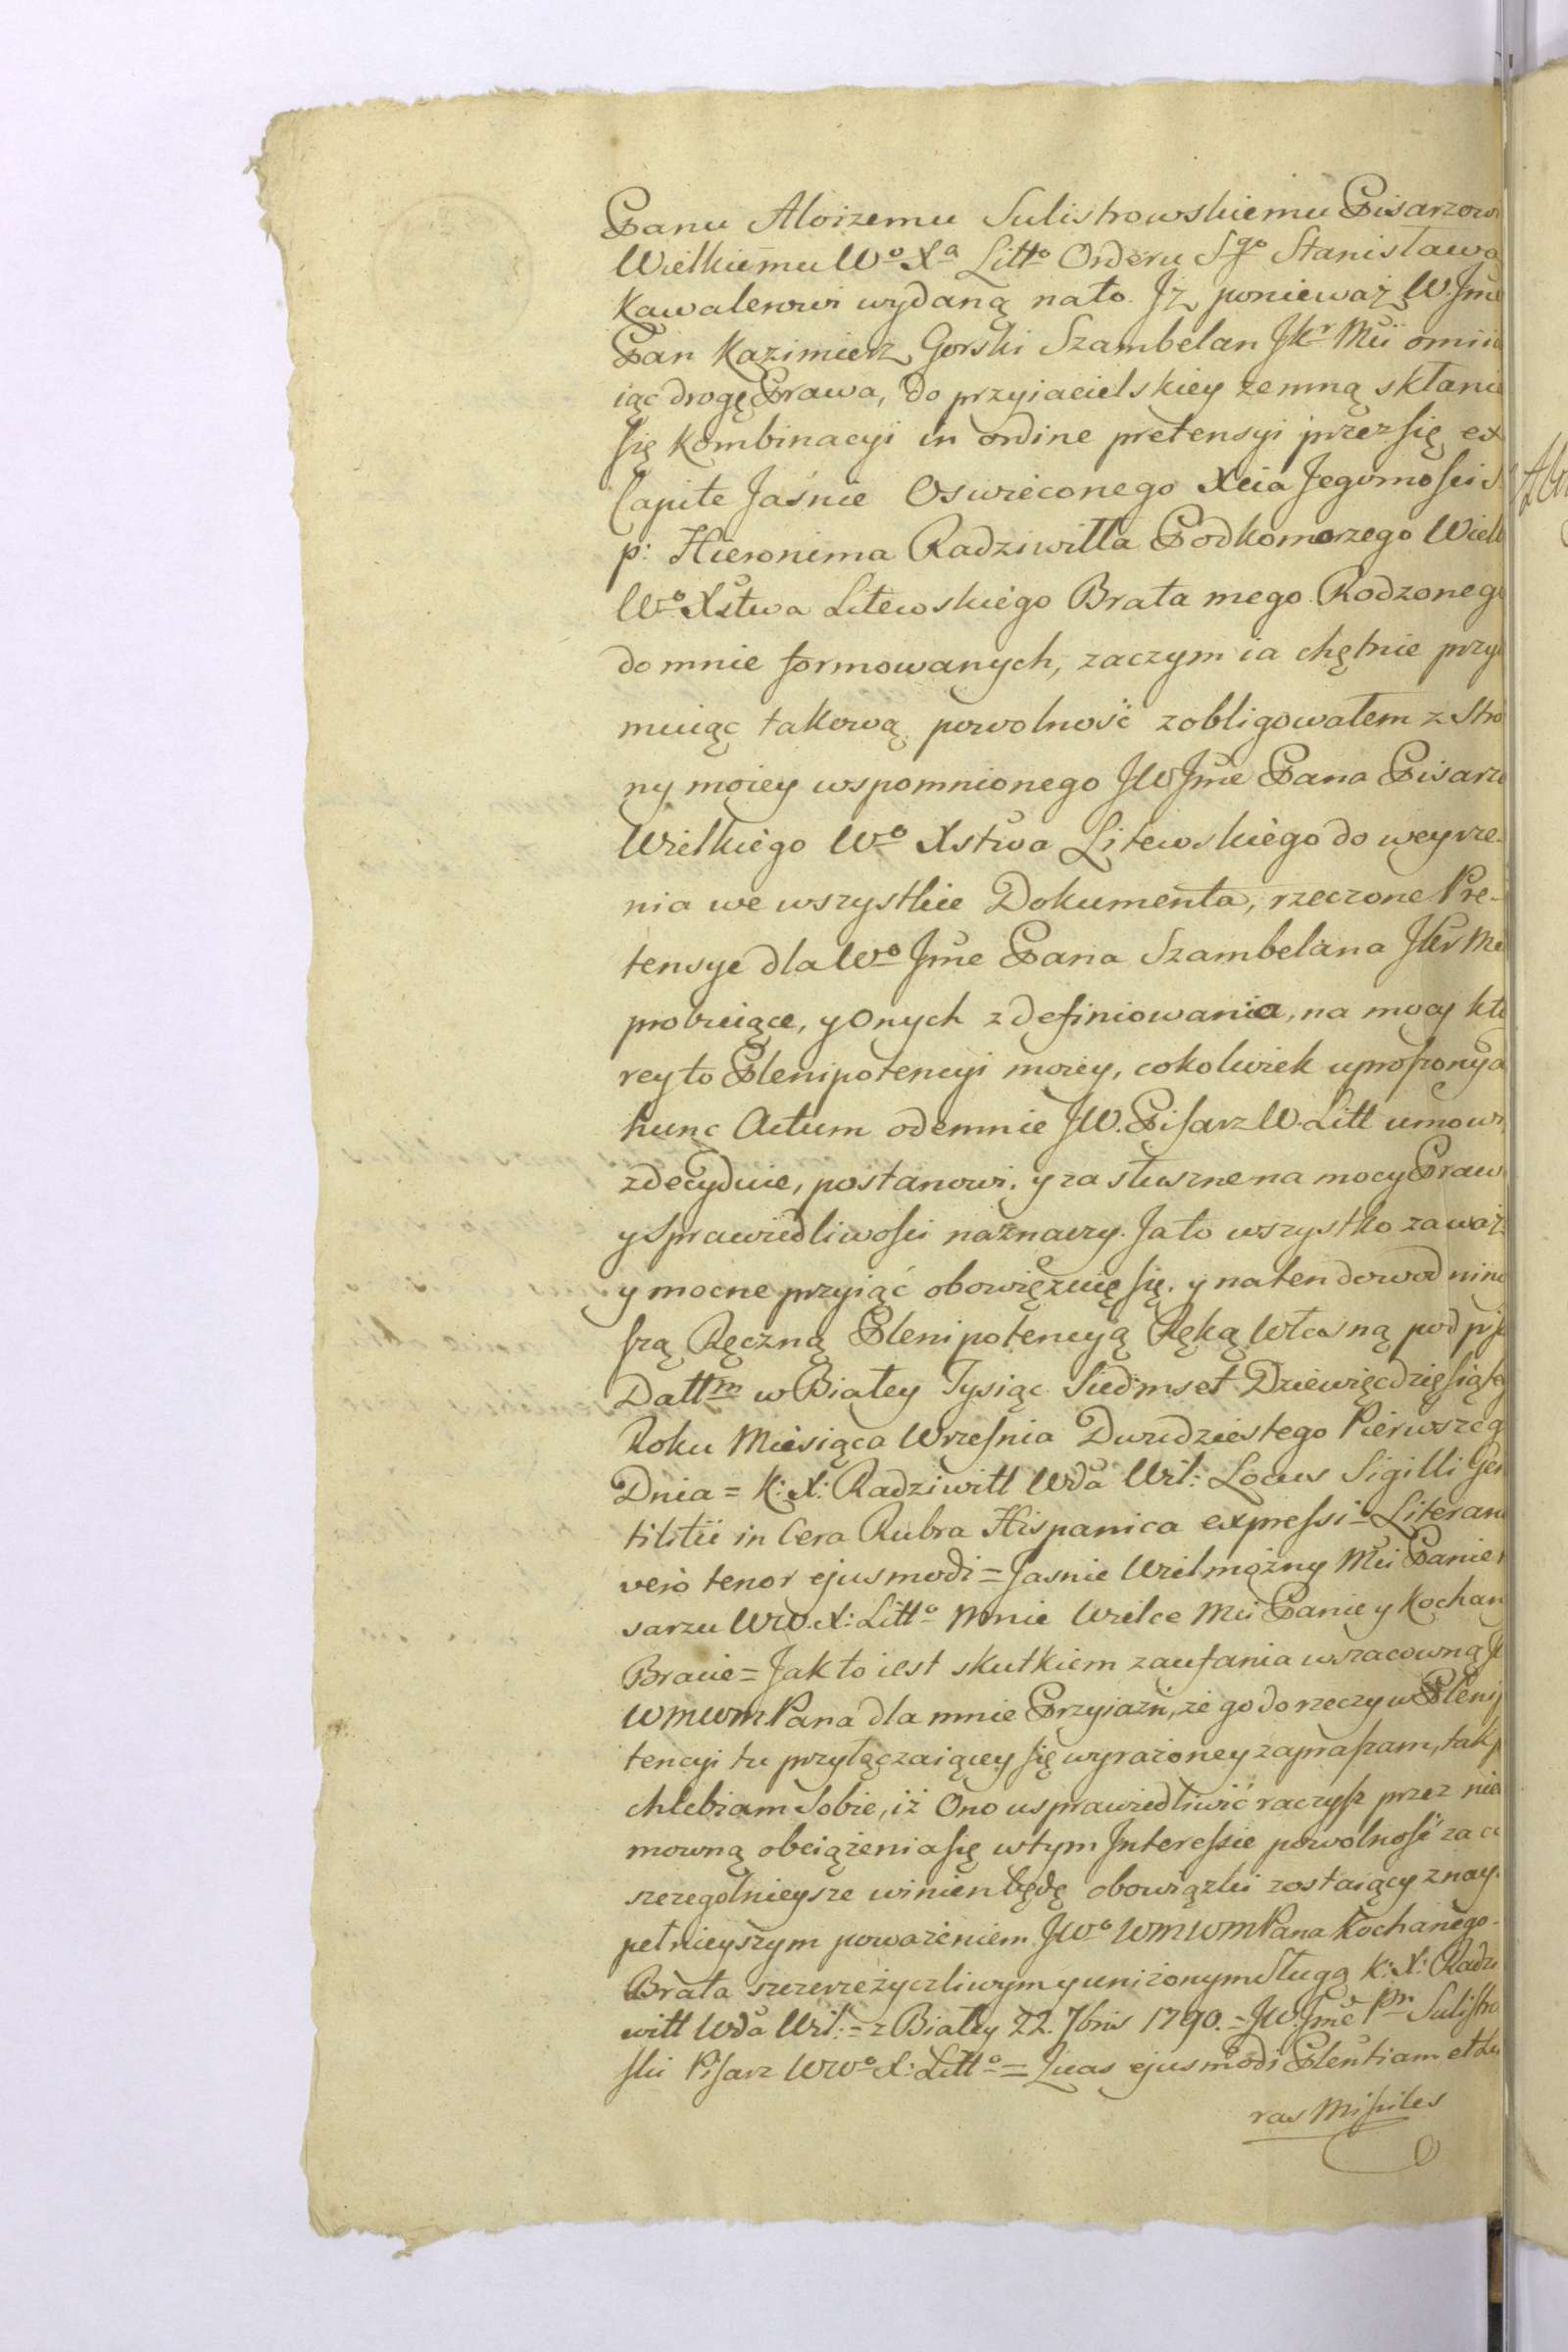 Panu Aloizemu Sulistrowskiemu Pisarzow
Wielkiemu Wo Xa Litto Orderu Sgo Stanisława
Kawalerowi wydaną nato. Jż ponieważ W. Jmć
Pan Kazimierz Gorski Szambelan JKr Mći omiia
iąc drogę Prawa, do przyiacielskiey zemną skłania
się kombinacyi in ordine pretensyi przez się ex
Capite Jaśnie Oswieconego Xcia Jegomości S
p: Hieronima Radziwiłła Podkomorzego Wielk
Wo Xstwa Litewskiego Brata mego Rodzonego
do mnie formowanych, zaczym ia chętnie przyi
muiąc takową powolność zobligowałem z Stro
ny moiey wspomnionego JW Jmć Pana Pisarza
Wielkiego Wo Xstwa Litewskiego do weyrze-
nia we wszystkie Dokumenta, rzeczone Pre-
tensye dla Wo Jmć Pana Szambelana JKr Mci
probuiące, y Onych zdefiniowania, na mocy kto
rey to Plenipotencyi moiey, cokolwiek uproszony a
hunc Actum odemnie JW. Pisarz W. Litt umowi
zdecyduie, postanowi. y za słuszne na mocy Praw
y Sprawiedliwości naznaczy. Ja to wszystko za waż
y mocne przyiąć obowięzuię się. y na ten dowod nini
szą Ręczną Plenipotencyą Ręką własną podpisu
Dattm w Białey Tysiąc Siedmset Dziewięcdziesiąteg
Roku Miesiąca Września Dwudziestego Pierwszeg
Dnia = K: X: Radziwiłł Wda Wil: Locus Sigilli Gen
tilitii in Cera Rubra Hispanica expressi = Literaru
vero tenor ejusmodi = Jasnie Wielmożny Mći Panie
sarzu WW. X: Litto Mnie Wielce Mći Panie y Kochan
Bracie = Jak to iest skutkiem zaufania w szacowną J
WMWM Pana dla mnie Przyiazń, że go do rzeczy w Plenip
tencyi tu przyłączaiącey się wyrażoney zapraszam, tak p
chlebiam Sobie, iż Ono usprawiedliwić raczysz przez nie
mowną obciążenia się w tym Interessie powolność za co
szczegolnieysze winien będę obowiązki zostaiący z nay-
pełnieyszym poważeniem. JWo WMWM Pana Kochanego-
Brata szczerze życzliwym y uniżonym Sługą K: X: Radzi
wiłł Wda Wil: = z Białey 22. 7bris 1790. = JW. Jmć Pn Sulistro
ski Pisarz WWo X: Litto = Quas ejusmodi Plentiam et Lit
ras Missiles